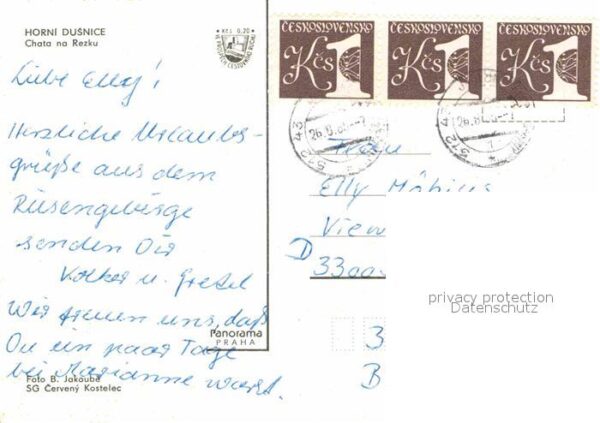 HORNI DUŠNICE
Chata na Rezku
Kčs 0,20
ČESKOSLOVENSKO
Kčs 1
ČESKOSLOVENSKO
Kčs 1
ČESKOSLOVENSKO
Kčs 1
Liebe Elly!
Herzliche Urlaubs-
grüße aus dem
Riesengebirge
senden Dir
Volker u. Gretel
Wir freuen uns, daß
Du ein paar Tage
bei Marianne warst.
512 43
Elly
D
Panorama
PRAHA
Foto B. Jakoubě
SG Červený Kostelec
3
B
privacy protection
Datenschutz